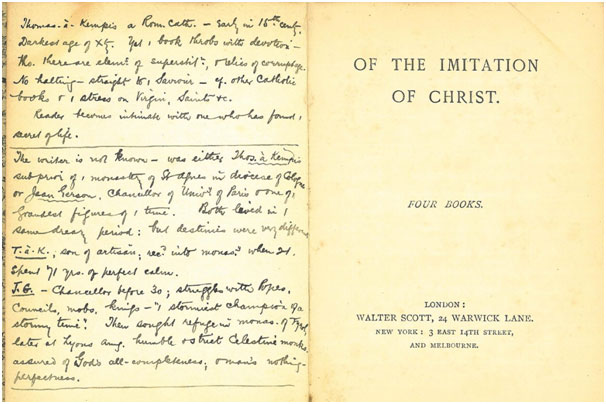 Thomas-à-Kempis a Rom. Cath. - Early in 15th cent.
Darkest age of Xty. Yet 1 book throbs with devotion -
Tho. there are elemts of superstitn, & relics of corruptage.
No halting - straight to 1 Saviour - cf. other Catholic
books & 1 stress on Virgin, Saints &c.
Reader becomes intimate with one who has found 1
secret of life.
The writer is not known - was either Thos. à Kempis
sub prior of 1 monastery of St Agnes in diocese of Cologne
or Jean Gerson, Chancellor of Univy of Paris & one of
grandest figures of 1 time. Both lived in 1
same dreary period: but destinies were very different
T. à. K., son of artisan, recd into monasy when 21.
Spent 71 yrs. of perfect calm.
J.G. - Chancellor before 30; struggles with Popes,
Councils, mobs, kings - "1 stormiest champion of a
stormy time". Then sought refuge in monas. of Tyrol,
later at Lyons amg. humble & strict Celestine monks
assured of God's all-completeness, & man's nothing-
perfectness.
OF THE IMITATION
OF CHRIST.
FOUR BOOKS.
LONDON:
WALTER SCOTT, 24 WARWICK LANE.
NEW YORK: 3 EAST 14TH STREET,
AND MELBOURNE.